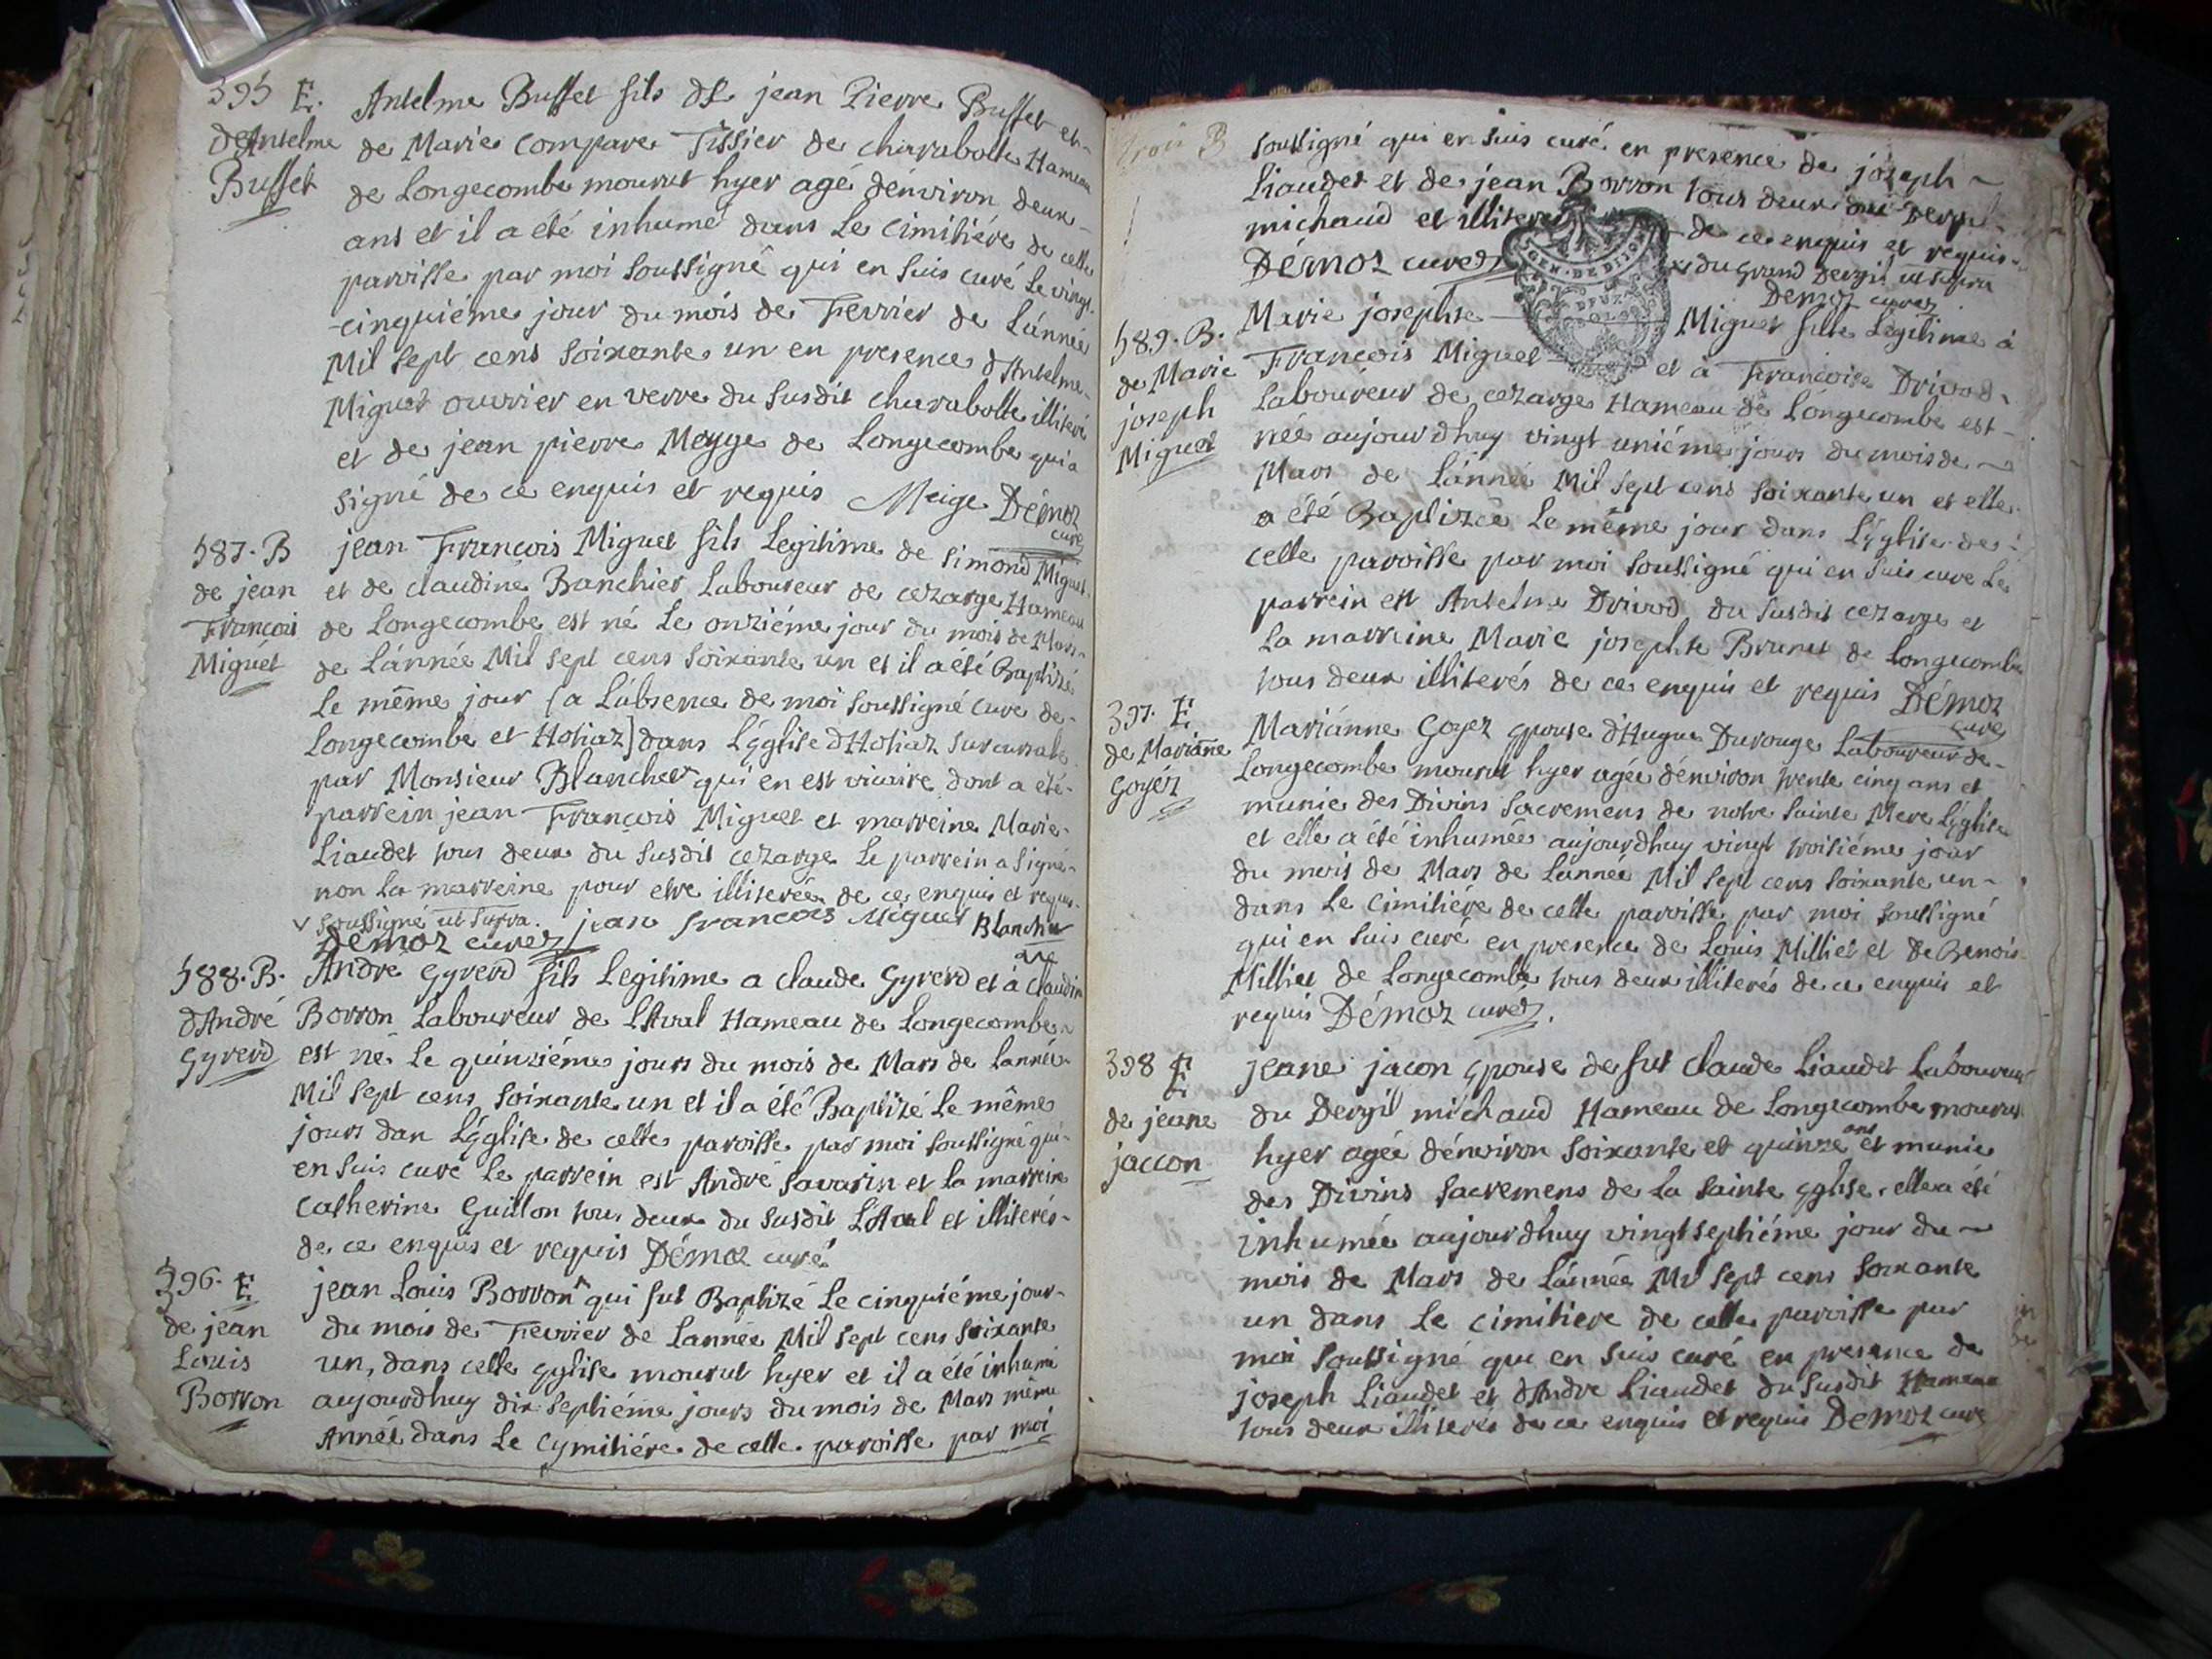 395 E.
d'Antelme
Buffet
Antelme Buffet fils de jean Pierre Buffet et
de Marie Compare Tissier de charabotte Hameau
de Longecombe mourut hyer agé dénviron deux
ans et il a eté inhumé dans Le Cimitiére de cette
paroisse par moi soussigné qui en suis curé Le vingt
cinquiéme jour du mois de Fevrier de Lánnée
Mil sept cens soixante un en presence d'Antelme
Miguet ouvrier en verre du susdit charabotte illiteré
et de jean pierre Meyge de Longecombe qui a
signé de ce enquis et requis Meige Démoz
curé
587. B
de jean
Francois
Miguet
jean Francois Miguet fils Legitime de simond Miguet
et de claudine Banchier Laboureur de cezarge Hameau
de Longecombe est né Le onziéme jour du mois de Mars
de Lánnée Mil sept cens soixante un et il a été Baptizé
Le même jour (a Lábsence de moi soussigné curé de
Longecombe et Hotiaz) dans Léglise d'Hotiaz succursale
par Monsieur Blanchet qui en est vicaire dont a été
parrein jean François Miguet et marreine Marie
Liaudet tous deux du susdit cezarge Le parrein a signé
non La marreine pour etre illiterée de ce enquis et requis
soussigné ut supra. jean francois Miguet Blanchet
Démoz curé vic
588. B.
d'André
Gyrerd
André Gyrerd fils Legitime a claude Gyrerd et á claudine
Borron Laboureur de L'Aval Hameau de Longecombe
est né Le quinziéme jours du mois de Mars de Lannée
Mil sept cens soixante un et il a été Baptizé Le même
jours dan Léglise de cette paroisse par moi soussigné qui
en suis curé Le parrein est André savarin et La marreine
Catherine Guillon tous deux du susdit L'Aval et illiterés
de ce enquis et requis Démoz curé
396. E
de jean
Louis
Borron
jean Louis Borron qui fut Baptizé Le cinquiéme jour
du mois de Fevrier de Lannée Mil sept cens soixante
un, dans cette Eglise mourut hyer et il a été inhumé
aujourdhuy dix septiéme jours du mois de Mars même
Année dans Le Cymitiére de cette paroisse par moi
trois B
soussigné qui en suis curé en presence de joseph
Liaudet et de jean Borron tous deux du Dergil
michaud et illiterés de ce enquis et requis
Démoz curé du grand Dergil ut supra
Demoz curé
GEN. DE DIJON
589. B.
de Marie
joseph
Miguet
Marie josephte Miguet fille Legitime á
François Miguet et á Françoise Drivod
Laboureur de cezarge Hameau de Longecombe est
née aujourdhuy vingt uniéme jours du mois de
Mars de Lánnée Mil sept cens soixante un et elle
a été Baptizée Le même jour dans Léglise de
cette paroisse par moi soussigné qui en suis curé Le
parrein est Antelme Drivod du susdit cezarge et
La marreine Marie josephte Brunet de Longecombe
tous deux illiterés de ce enquis et requis Démoz
curé
397. E
de Marianne
Goyez
Mariánne Goyez Epouse d'Hugue Durouge Laboureur de
Longecombe mourut hyer agée dénviron trente cinq ans et
munie des Divins sacremens de notre sainte Mere Léglise
et elle a été inhumée aujourdhuy vingt troisiéme jour
du mois de Mars de Lánnée Mil sept cens soixante un
dans Le Cimitiére de cette paroisse par moi soussigné
qui en suis curé en presence de Louis Milliet et de Benois
Milliet de Longecombe tous deux illiterés de ce enquis et
requis Démoz curé.
398 E
de jeane
jaccon
jeane jacon Epouse de fut claude Liaudet Laboureur
du Dergil michaud Hameau de Longecombe mourut
hyer agée dénviron soixante et quinze ans et munie
des Divins sacremens de La sainte Eglise. elle a été
inhumée aujourdhuy vingt septiéme jour du
mois de Mars de Lánnée Mil sept cens soixante
un dans Le cimitiere de cette paroisse par
moi soussigné qui en suis curé en presence de
joseph Liaudet et d'Andre Liaudet du susdit Hameau
tous deux illiterés de ce enquis et requis Demoz curé